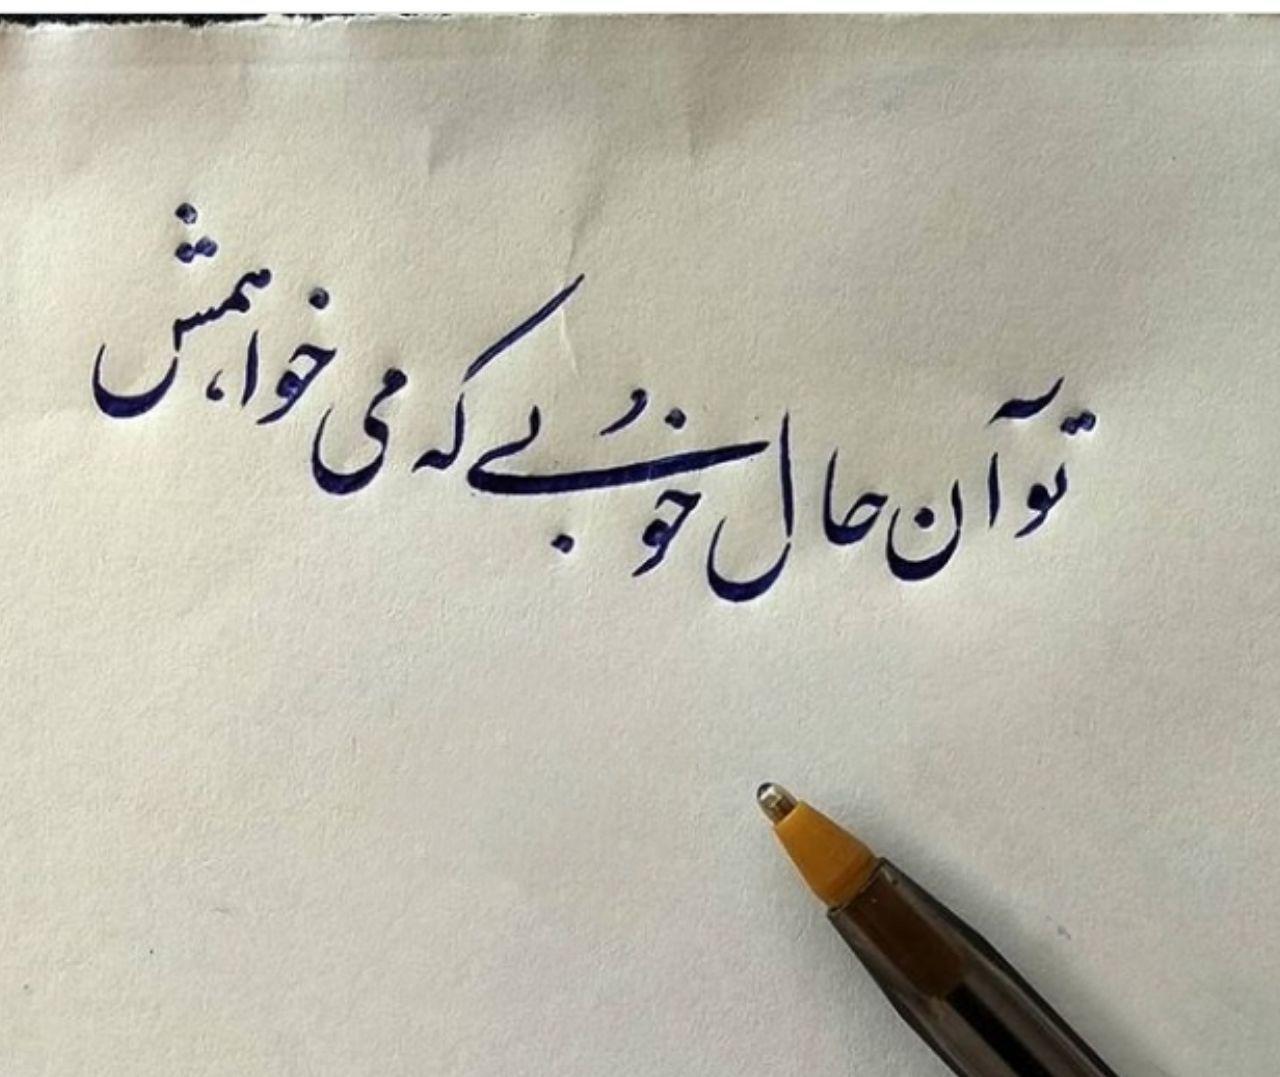 تو آن حال خوبی که می خواهمش